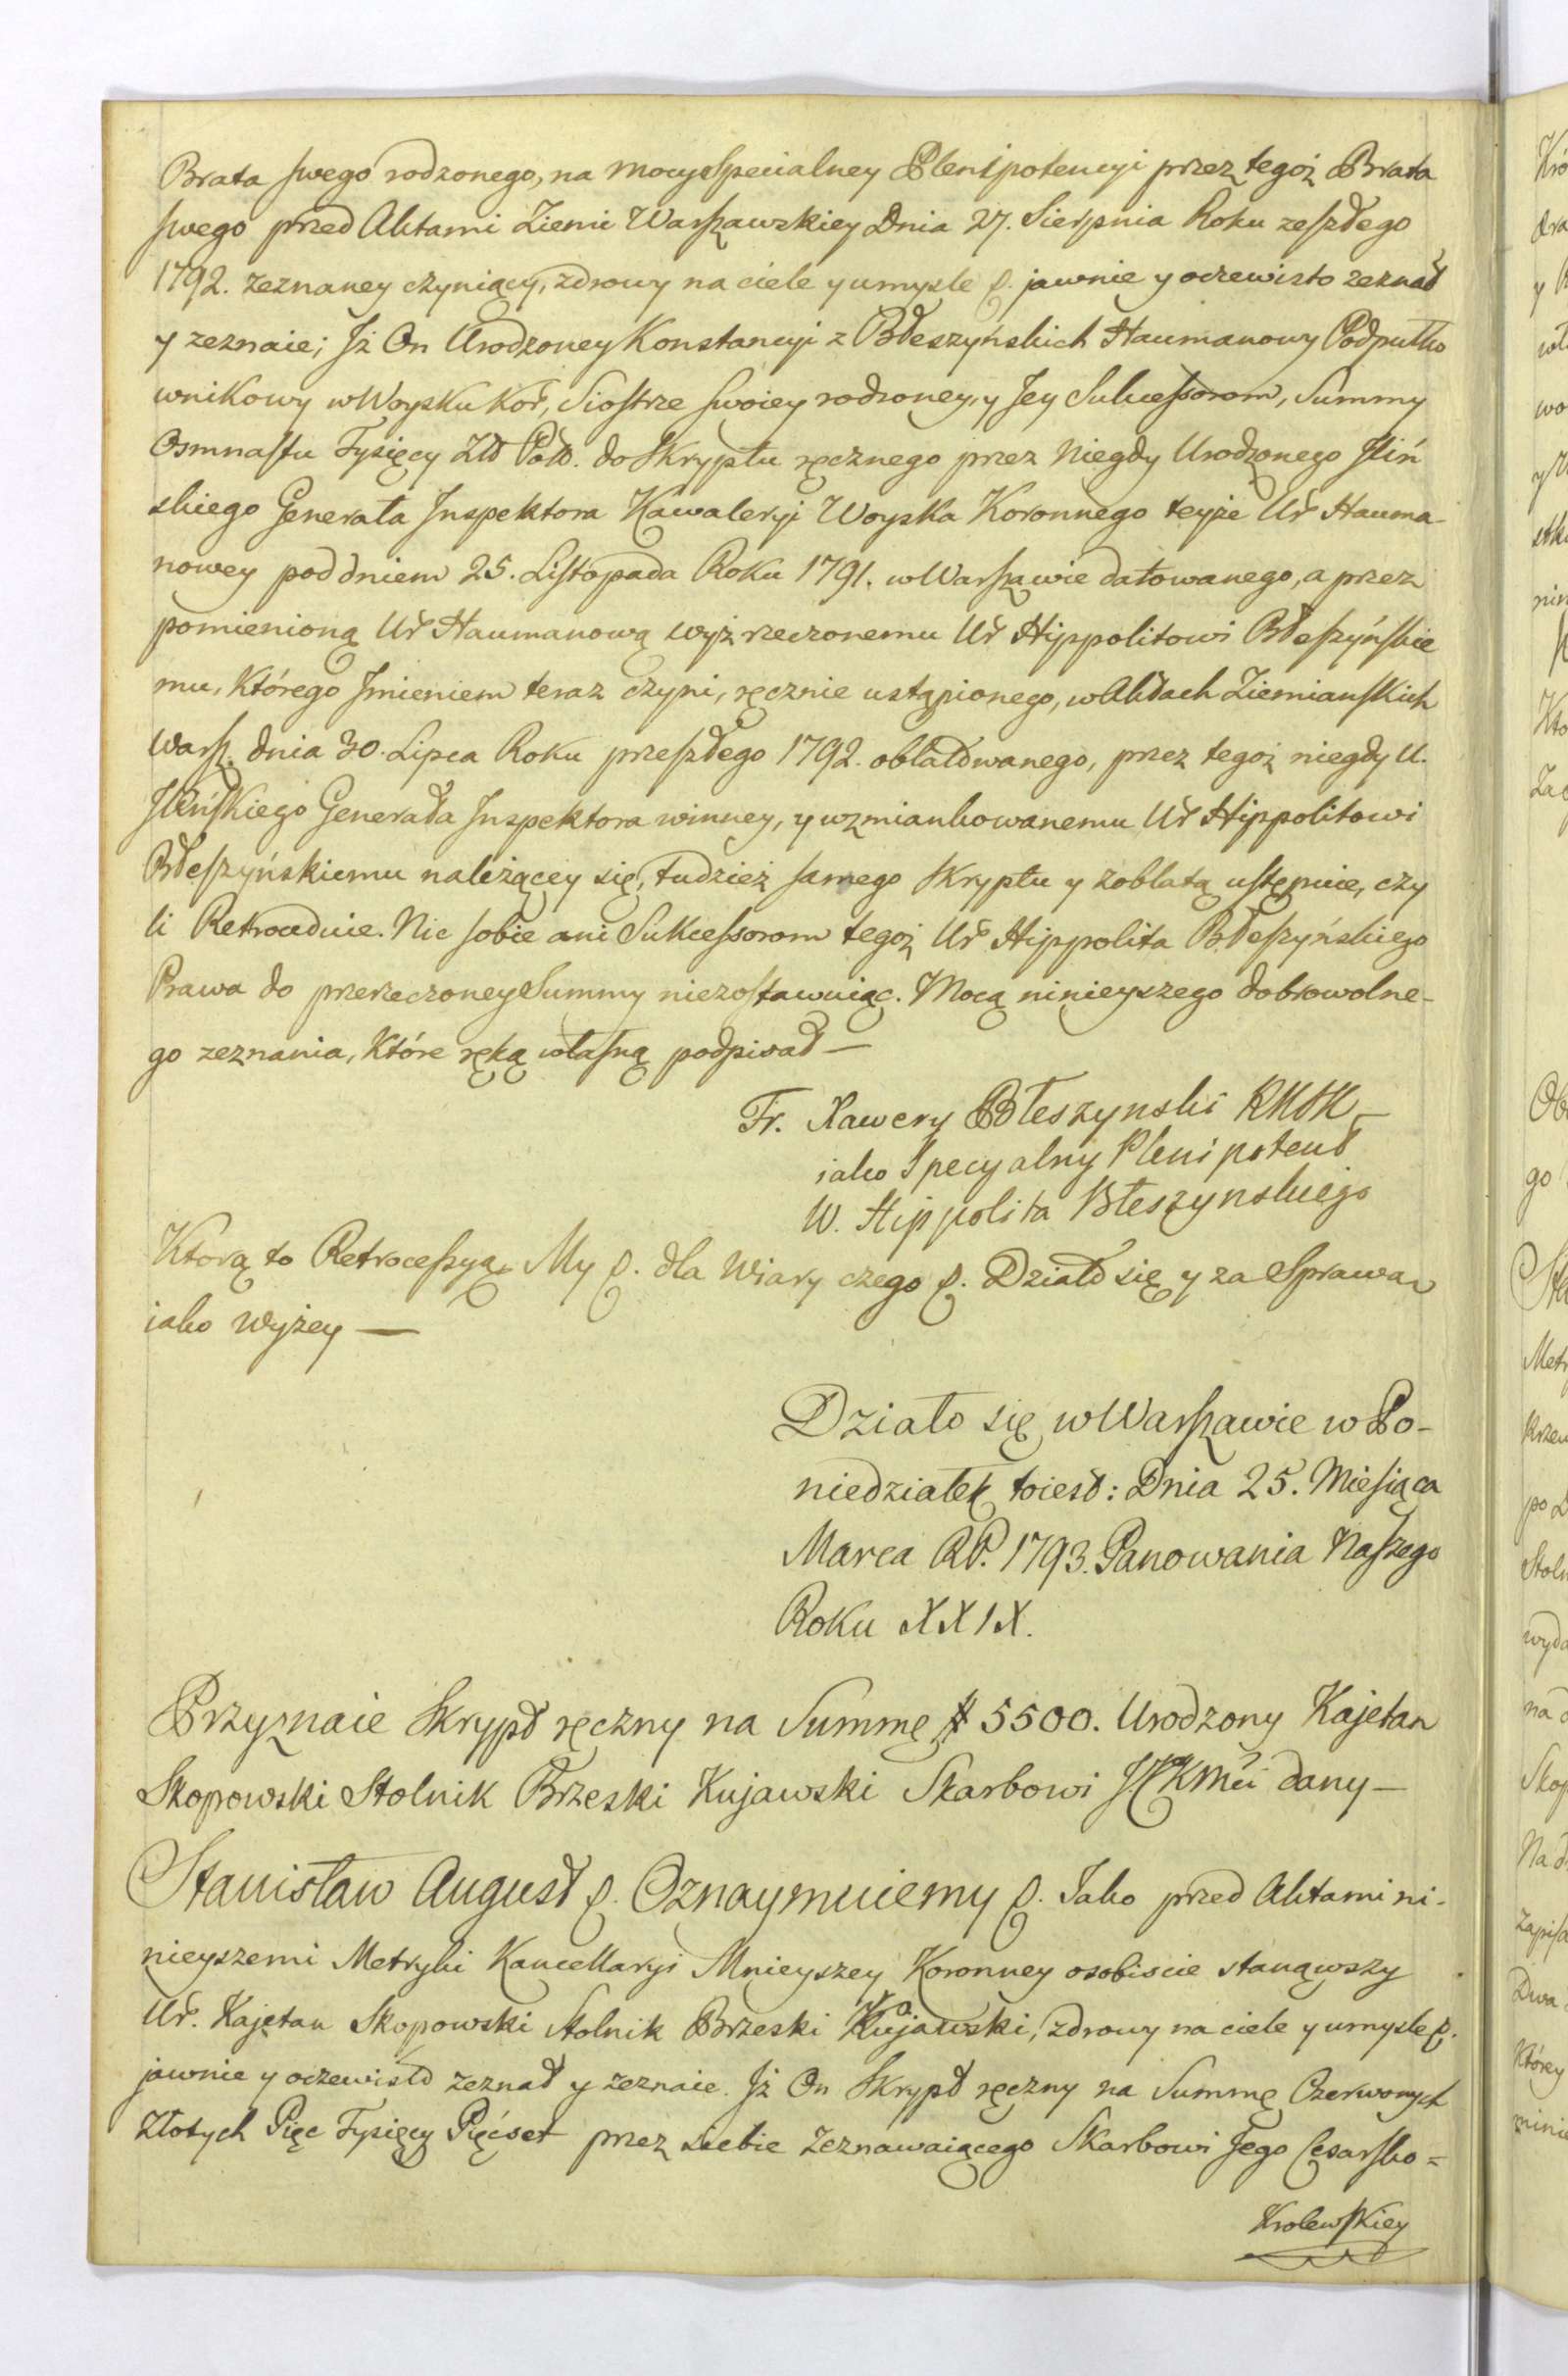 Brata swego rodzonego, na mocy Specialney Plenipotencyi przez tegoż Brata
swego przed Aktami Ziemi Warszawskiey Dnia 27. Sierpnia Roku zeszłego
1792. zeznaney czyniący, zdrowy na ciele y umysle p. jawnie y oczewisto zeznał
y zeznaie; Jż On Urodzoney Konstancyi z Błeszyńskich Haumanowy Podpułko
wnikowy w Woysku Kor, Siostrze swoiey rodzoney, y Jey Sukcessorom, Summy
Osmnastu Tysięcy Zło Pols. do Skryptu ręcznego przez niegdy Urodzonego Jliń
skiego Generała Jnspektora Kawaleryi Woyska Koronnego teyże Ur Hauma-
nowey pod dniem 25. Listopada Roku 1791. w Warszawie datowanego, a przez
pomienioną Ur Haumanową wyż rzeczonemu Ur Hippolitowi Błeszyńskie
mu, którego Jmieniem teraz czyni, ręcznie ustąpionego, w Aktach Ziemianskich
Warsz. dnia 30. Lipca Roku przeszłego 1792. oblatowanego, przez tegoż niegdy U.
Jlińskiego Generała Jnspektora winney, y wzmiankowanemu Ur Hippolitowi
Błeszyńskiemu należącey się, tudzież samego Skryptu y z oblatą ustępuie, czy
li Retroceduie. Nic sobie ani Sukcessorom tegoż Ur Hippolita Błeszyńskiego
Prawa do przerzeczoney Summy niezostawuiąc. Mocą ninieyszego dobrowolne-
go zeznania, Które ręką własną podpisał —
Fr. Xawery Błeszynski
iako Specyalny Plenipotent
W. Hippolita Błeszynskiego
Ktorą to Retrocessyą My p. dla Wiary czego p. Działo się y za Sprawą
iako wyżey —
Działo się w Warszawie w Po-
niedziałek toiest: Dnia 25. Miesiąca
Marca RP. 1793. Panowania Naszego
Roku XXIX.
Przyznaie Skrypt ręczny na Summę # 5500. Urodzony Kajetan
Skopowski Stolnik Brzeski Kujawski Skarbowi JCKMci dany —
Stanisław August p. Oznaymuiemy p. Jako przed Aktami ni-
nieyszemi Metryki Kancellaryi Mnieyszey Koronney osobiscie stanąwszy
Ur. Kajetan Skopowski Stolnik Brzeski Kujawski, zdrowy na ciele y umysle p.
jawnie y oczewisto zeznał y zeznaie. Jż On Skrypt ręczny na Summę Czerwonych
Złotych Pięc Tysięcy Pięćset przez siebie Zeznawaiącego Skarbowi Jego Cesarsko=
Krolewskiey